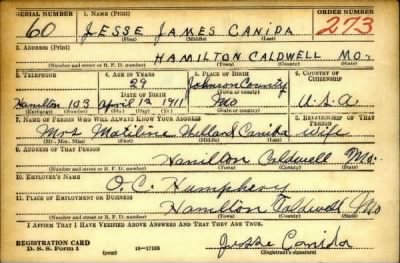 SERIAL NUMBER 1. NAME (Print) ORDER NUMBER
60 JESSE JAMES CANIDA 273
(First) (Middle) (Last)
2. ADDRESS (Print)
HAMILTON CALDWELL MO.
(Number and street or R. F. D. number) (Town) (County) (State)
3. TELEPHONE 4. AGE IN YEARS 5. PLACE OF BIRTH 6. COUNTRY OF CITIZENSHIP
29 Johnson County
DATE OF BIRTH (Town or county)
Hamilton 103 April 12 1911 Mo U.S.A
(Exchange) (Number) (Mo.) (Day) (Yr.) (State or country)
7. NAME OF PERSON WHO WILL ALWAYS KNOW YOUR ADDRESS 8. RELATIONSHIP OF THAT PERSON
Mrs Canida Wife
(Mr., Mrs., Miss) (First) (Middle) (Last)
9. ADDRESS OF THAT PERSON
Hamilton Caldwell Mo.
(Number and street or R. F. D. number) (Town) (County) (State)
10. EMPLOYER'S NAME
O. C. Humphery
11. PLACE OF EMPLOYMENT OR BUSINESS
Hamilton Caldwell Mo
(Number and street or R. F. D. number) (Town) (County) (State)
I AFFIRM THAT I HAVE VERIFIED ABOVE ANSWERS AND THAT THEY ARE TRUE.
REGISTRATION CARD
D. S. S. Form 1 16—17105 Jesse Canida
(Registrant's signature)